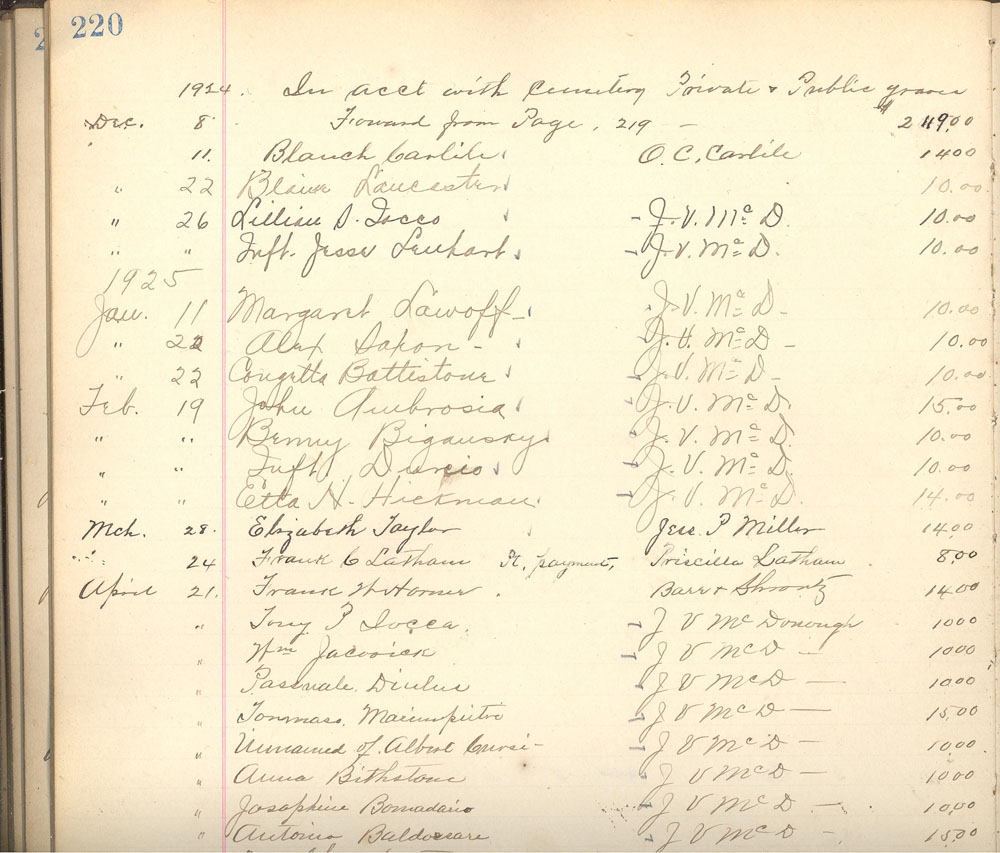 220
1924. In acct with Cemetery Private & Public graves
Dec. 8 Foward from Page. 219 — 2119.00
11. Blanch Carlile O. C. Carlile 14 00
" 22 Blaine Lancaster 10.00
" 26 Lillian D. Iocco - J. V. Mc D. 10.00
" " Inft. Jesse Lenhart - J. V. Mc D. 10.00
1925
Jan. 11 Margaret Lawoff - J. V. Mc D - 10.00
" 22 Alex Sakon - J. V. Mc D - 10.00
" 22 Congetta Battistone J. V. Mc D - 10.00
Feb. 19 John Ambrosia J. V. Mc D. 15.00
" " Benny Bigausky J. V. Mc D. 10.00
" " Inft J. V. Mc D. 10.00
" " Etta N. Hickman J. V. Mc D. 14.00
Mch. 28. Elizabeth Taylor Jess. P Miller 14.00
" 24 Frank C Latham Pt. payment, Priscilla Latham 8.00
April 21. Frank W Horner . Barr & 14.00
" Tony P Iocca. J V Mc Donough 10 00
" Wm Jacovick J V Mc D — 10 00
" Pasquale. Diulus J V Mc D — 10 00
" Tommaso. J V Mc D — 15.00
" Unnamed of. Albert Cursi - J V Mc D — 10.00
" Anna Bithstone J V Mc D — 10 00
" Josaphine Bomadario J V Mc D — 10.00
" Antonio Baldossare J V Mc D - 15.00